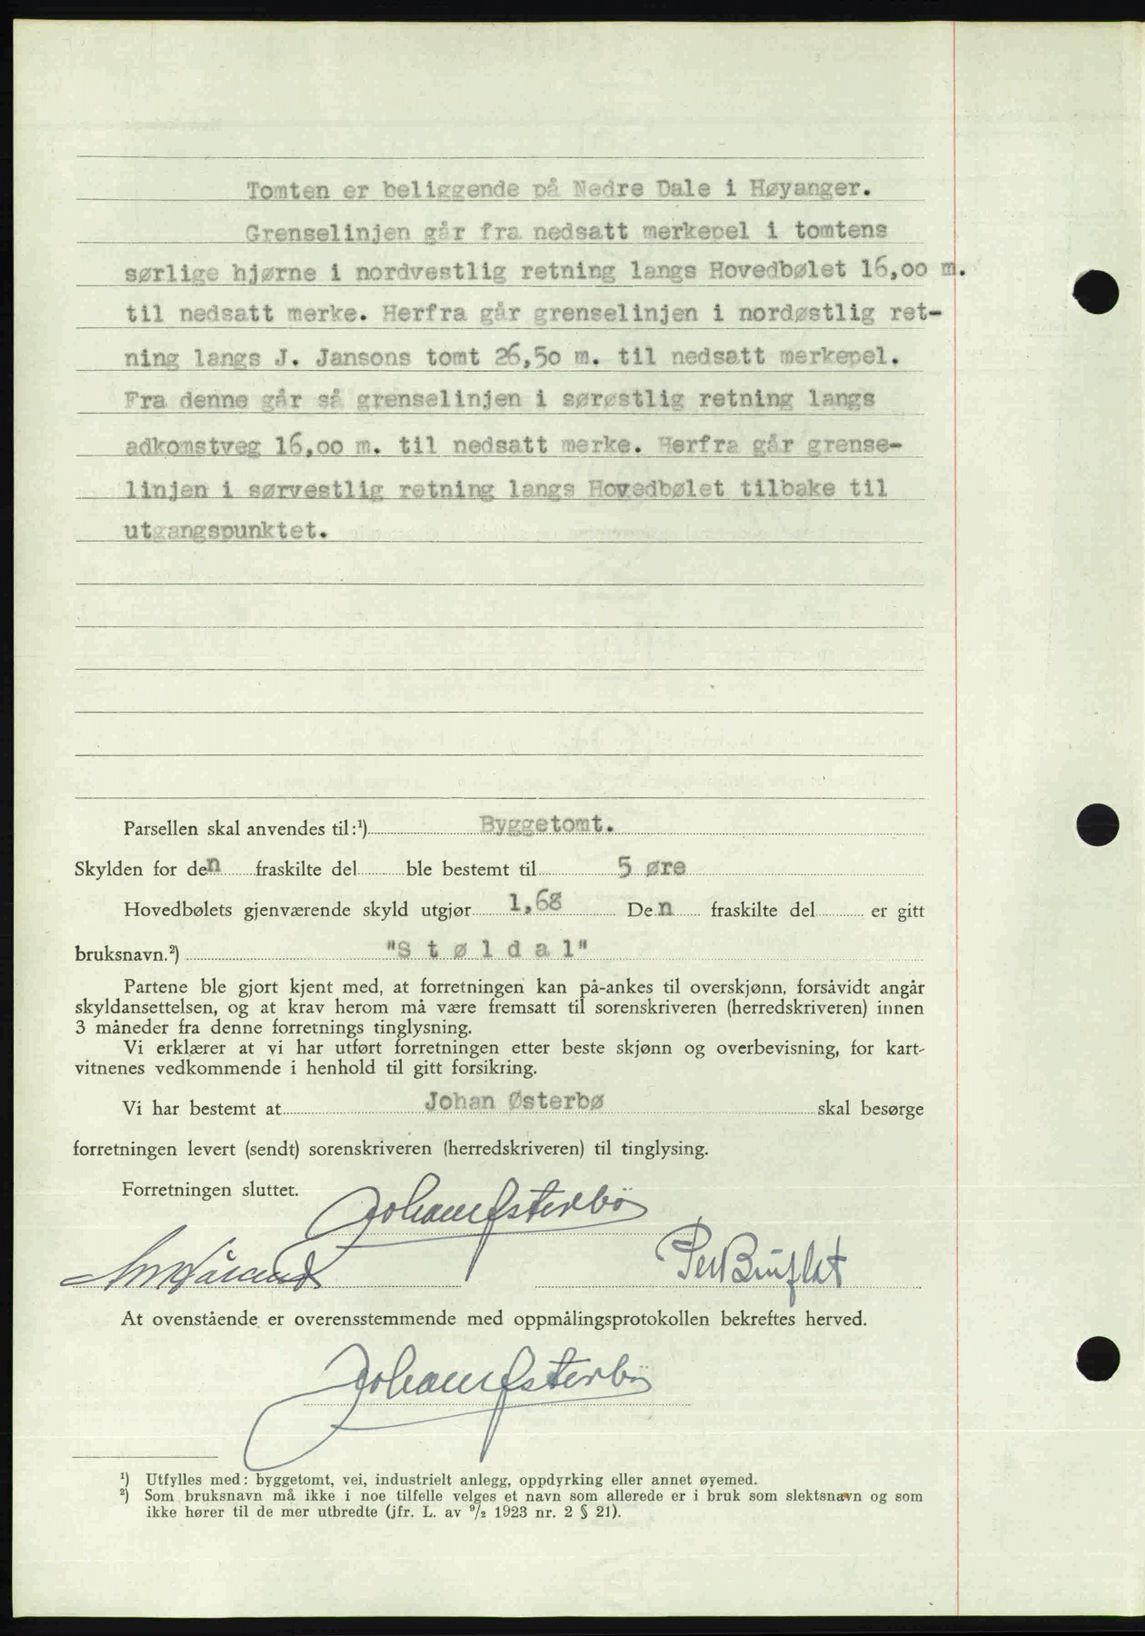 Tomten er beliggende på Nedre Dale i Høyanger.
Grenselinjen går fra nedsatt merkepel i tomtens
sørlige hjørne i nordvestlig retning langs Hovedbølet 16,00 m.
til nedsatt merke. Herfra går grenselinjen i nordøstlig ret-
ning langs J. Jansons tomt 26,50 m. til nedsatt merkepel.
Fra denne går så grenselinjen i sørøstlig retning langs
adkomstveg 16,00 m. til nedsatt merke. Herfra går grense-
linjen i sørvestlig retning langs Hovedbølet tilbake til
utgangspunktet.
Parsellen skal anvendes til:¹) Byggetomt.
Skylden for den fraskilte del ble bestemt til 5 øre
Hovedbølets gjenværende skyld utgjør 1,68 Den fraskilte del er gitt
bruksnavn.²) "S t ø l d a l"
Partene ble gjort kjent med, at forretningen kan på-ankes til overskjønn, forsåvidt angår
skyldansettelsen, og at krav herom må være fremsatt til sorenskriveren (herredskriveren) innen
3 måneder fra denne forretnings tinglysning.
Vi erklærer at vi har utført forretningen etter beste skjønn og overbevisning, for kart-
vitnenes vedkommende i henhold til gitt forsikring.
Vi har bestemt at Johan Østerbø skal besørge
forretningen levert (sendt) sorenskriveren (herredskriveren) til tinglysing.
Forretningen sluttet.
Johan Østerbø
Per Bruflat
At ovenstående er overensstemmende med oppmålingsprotokollen bekreftes herved.
Johan Østerbø
¹) Utfylles med: byggetomt, vei, industrielt anlegg, oppdyrking eller annet øyemed.
²) Som bruksnavn må ikke i noe tilfelle velges et navn som allerede er i bruk som slektsnavn og som
ikke hører til de mer utbredte (jfr. L. av ⁹/₂ 1923 nr. 2 § 21).